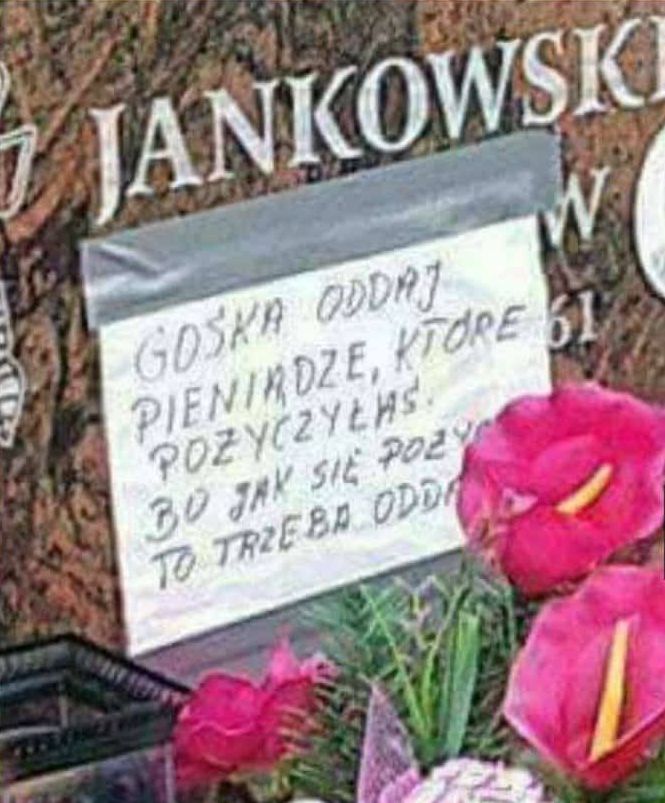 JANKOWSKI
W
61
GOŚKA ODDAJ
PIENIĄDZE, KTÓRE
POŻYCZYŁAŚ.
BO JAK SIĘ
TO TRZEBA